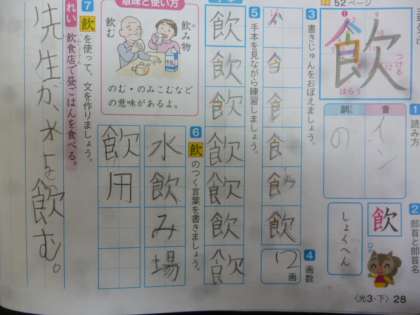 52ページ
飲
つける
はらう
1 読み方
音
イン
訓
の
2 部首と部首名
飲
しょくへん
3 書きじゅんをおぼえましょう。
4 画数
12画
5 手本を見ながら練習しましょう。
飲
飲
飲
飲
飲
飲
6 飲のつく言葉を書きましょう。
水飲み場
飲用
意味と使い方
飲み物
飲む
のむ・のみこむなどの意味があるよ。
7 飲を使って、文を作りましょう。
れい 飲食店で昼ごはんを食べる。
先生が、水を飲む。
〈光3・下〉 28